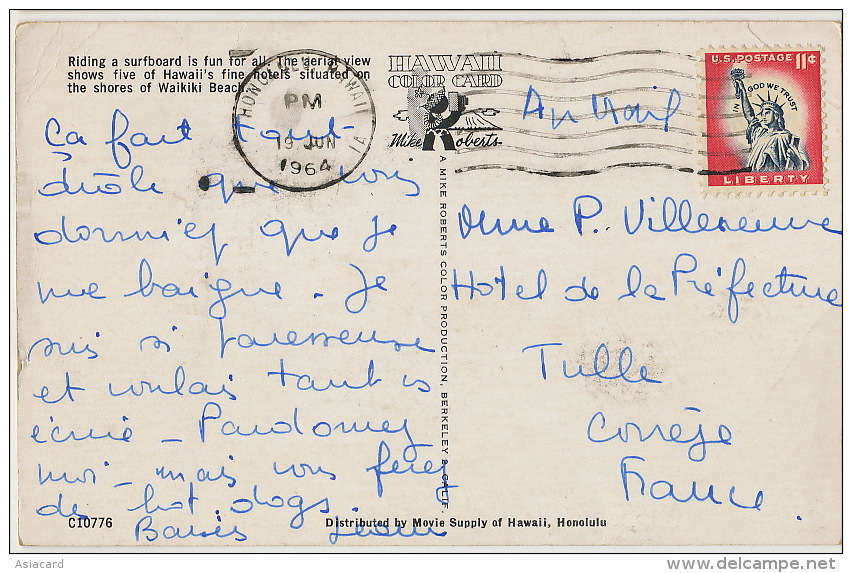 Riding a surfboard is fun for all. The aerial view
shows five of Hawaii's fine hotels situated on
the shores of Waikiki Beach.
HAWAII
COLOR CARD
Mike Roberts
HONOLULU, HAWAII
PM
19 JUN
1964
U.S. POSTAGE 11¢
IN GOD WE TRUST
LIBERTY
Air Mail
Ça fait tout
drôle que vous
dormiez que je
me baigne. Je
suis si paresseuse
et voulais tant vs
écrire - Pardonnez
moi - mais vous ferez
des hot. dogs.
Baisers
Mme P. Villeneuve
Hotel de la Préfecture
Tulle
Corrèze
France.
A MIKE ROBERTS COLOR PRODUCTION, BERKELEY 2, CALIF.
C10776
Distributed by Movie Supply of Hawaii, Honolulu
Asiacard
delcampe.net